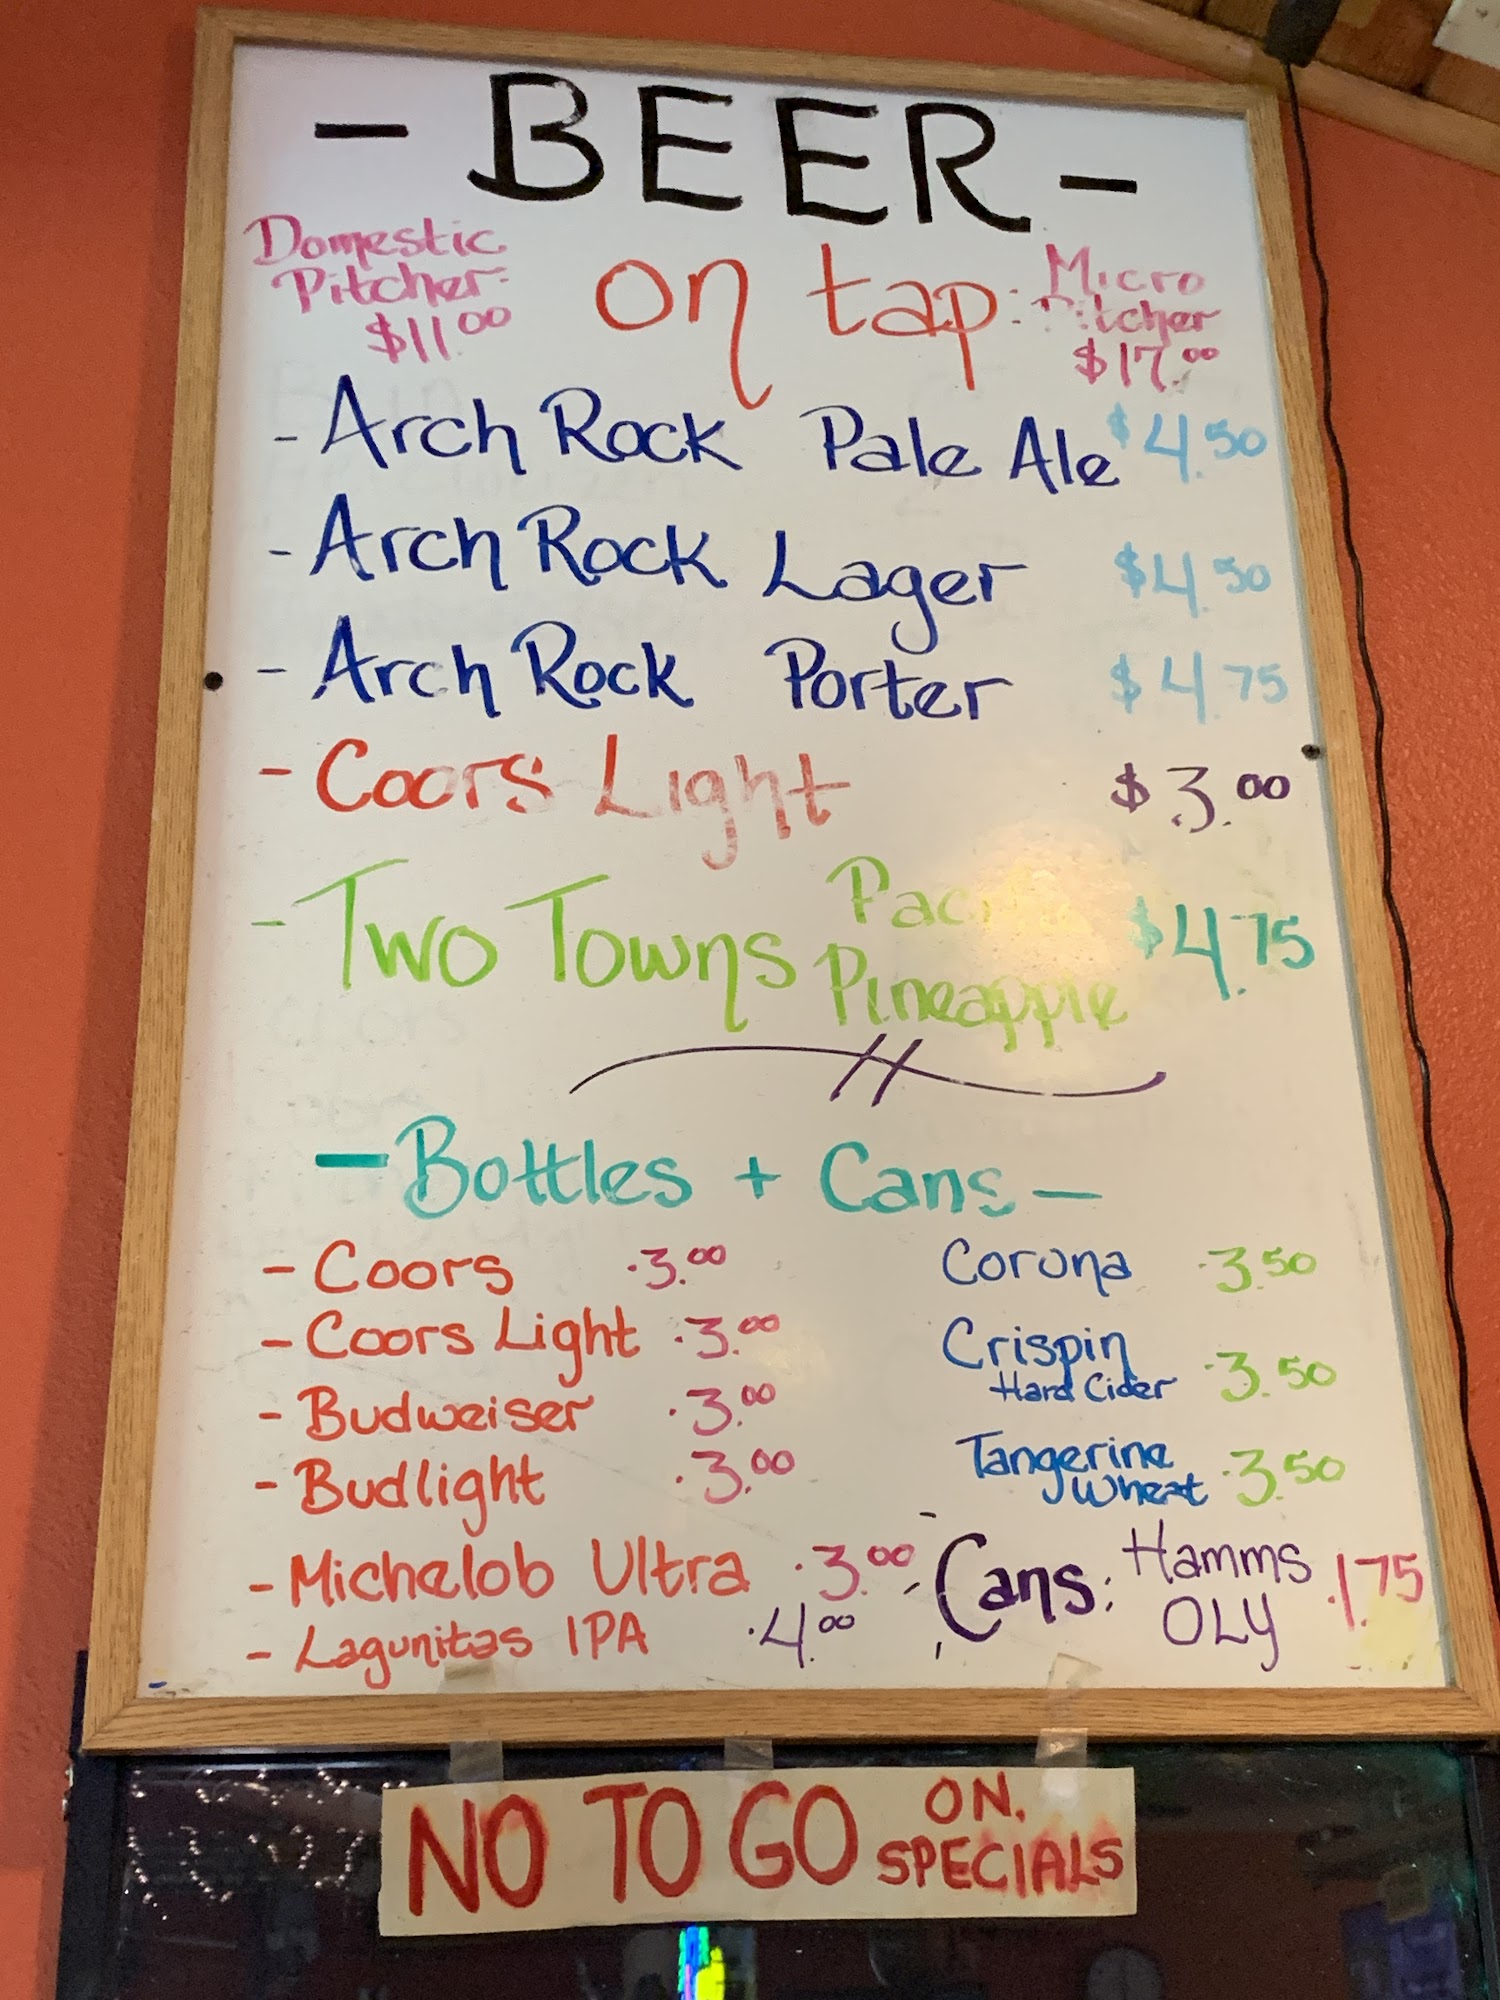 - BEER -
Domestic
Pitcher:
$11.00
on tap:
Micro
Pitcher
$17.00
- Arch Rock Pale Ale $4.50
- Arch Rock Lager $4.50
- Arch Rock Porter $4.75
- Coors Light $3.00
- Two Towns Pacific Pineapple $4.75
- Bottles + Cans -
- Coors .3.00
- Coors Light .3.00
- Budweiser .3.00
- Budlight .3.00
- Michelob Ultra .3.00
- Lagunitas IPA .4.00
Corona .3.50
Crispin
Hard Cider .3.50
Tangerine
Wheat .3.50
Cans: Hamms
OLY .1.75
NO TO GO ON
SPECIALS